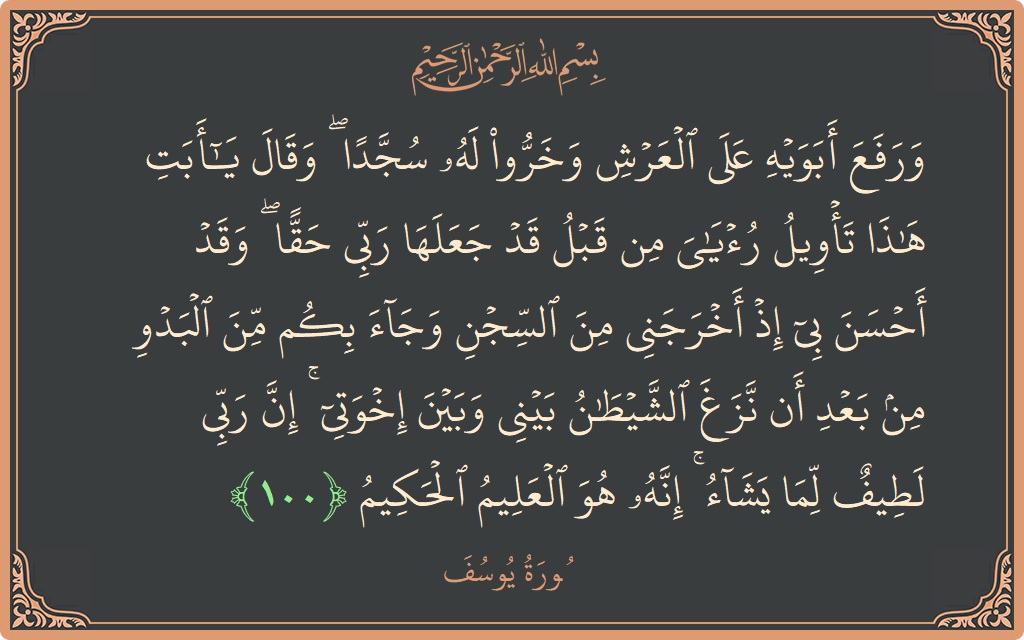 بِسْمِ اللَّهِ الرَّحْمَٰنِ الرَّحِيمِ
وَرَفَعَ أَبَوَيۡهِ عَلَى ٱلۡعَرۡشِ وَخَرُّواْ لَهُۥ سُجَّدٗاۖ وَقَالَ يَـٰٓأَبَتِ
هَـٰذَا تَأۡوِيلُ رُءۡيَـٰيَ مِن قَبۡلُ قَدۡ جَعَلَهَا رَبِّي حَقّٗاۖ وَقَدۡ
أَحۡسَنَ بِيٓ إِذۡ أَخۡرَجَنِي مِنَ ٱلسِّجۡنِ وَجَآءَ بِكُم مِّنَ ٱلۡبَدۡوِ
مِنۢ بَعۡدِ أَن نَّزَغَ ٱلشَّيۡطَٰنُ بَيۡنِي وَبَيۡنَ إِخۡوَتِيٓۚ إِنَّ رَبِّي
لَطِيفٞ لِّمَا يَشَآءُۚ إِنَّهُۥ هُوَ ٱلۡعَلِيمُ ٱلۡحَكِيمُ ﴿١٠٠﴾
سُورَةُ يُوسُفَ